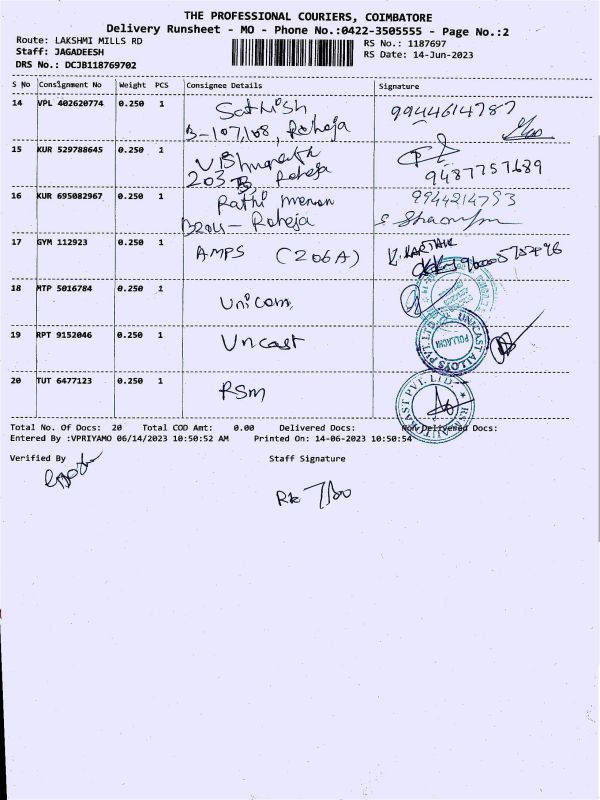 THE PROFESSIONAL COURIERS, COIMBATORE
Delivery Runsheet - MO - Phone No.:0422-3505555 - Page No.:2
Route: LAKSHMI MILLS RD
Staff: JAGADEESH
DRS No.: DCJB118769702
RS No.: 1187697
RS Date: 14-Jun-2023
S No Consignment No Weight PCS Consignee Details Signature
14 VPL 402620774 0.250 1 Sathish 9944614787
B-107/108, Raheja
15 KUR 529788645 0.250 1 Vishwanath
203 B, Raheja 9487757689
16 KUR 695082967 0.250 1 Rathi menon 9944214793
B204 - Raheja
17 GYM 112923 0.250 1 AMPS (206A) K. KARTHIK
18 MTP 5016784 0.250 1 Unicom,
19 RPT 9152046 0.250 1 Uncast UNICAST ALLOYS PVT. LTD. POLLACHI
20 TUT 6477123 0.250 1 RSm PVT. LTD. RSM
Total No. Of Docs: 20 Total COD Amt: 0.00 Delivered Docs: Non Delivered Docs:
Entered By :VPRIYAMO 06/14/2023 10:50:52 AM Printed On: 14-06-2023 10:50:54
Verified By Staff Signature